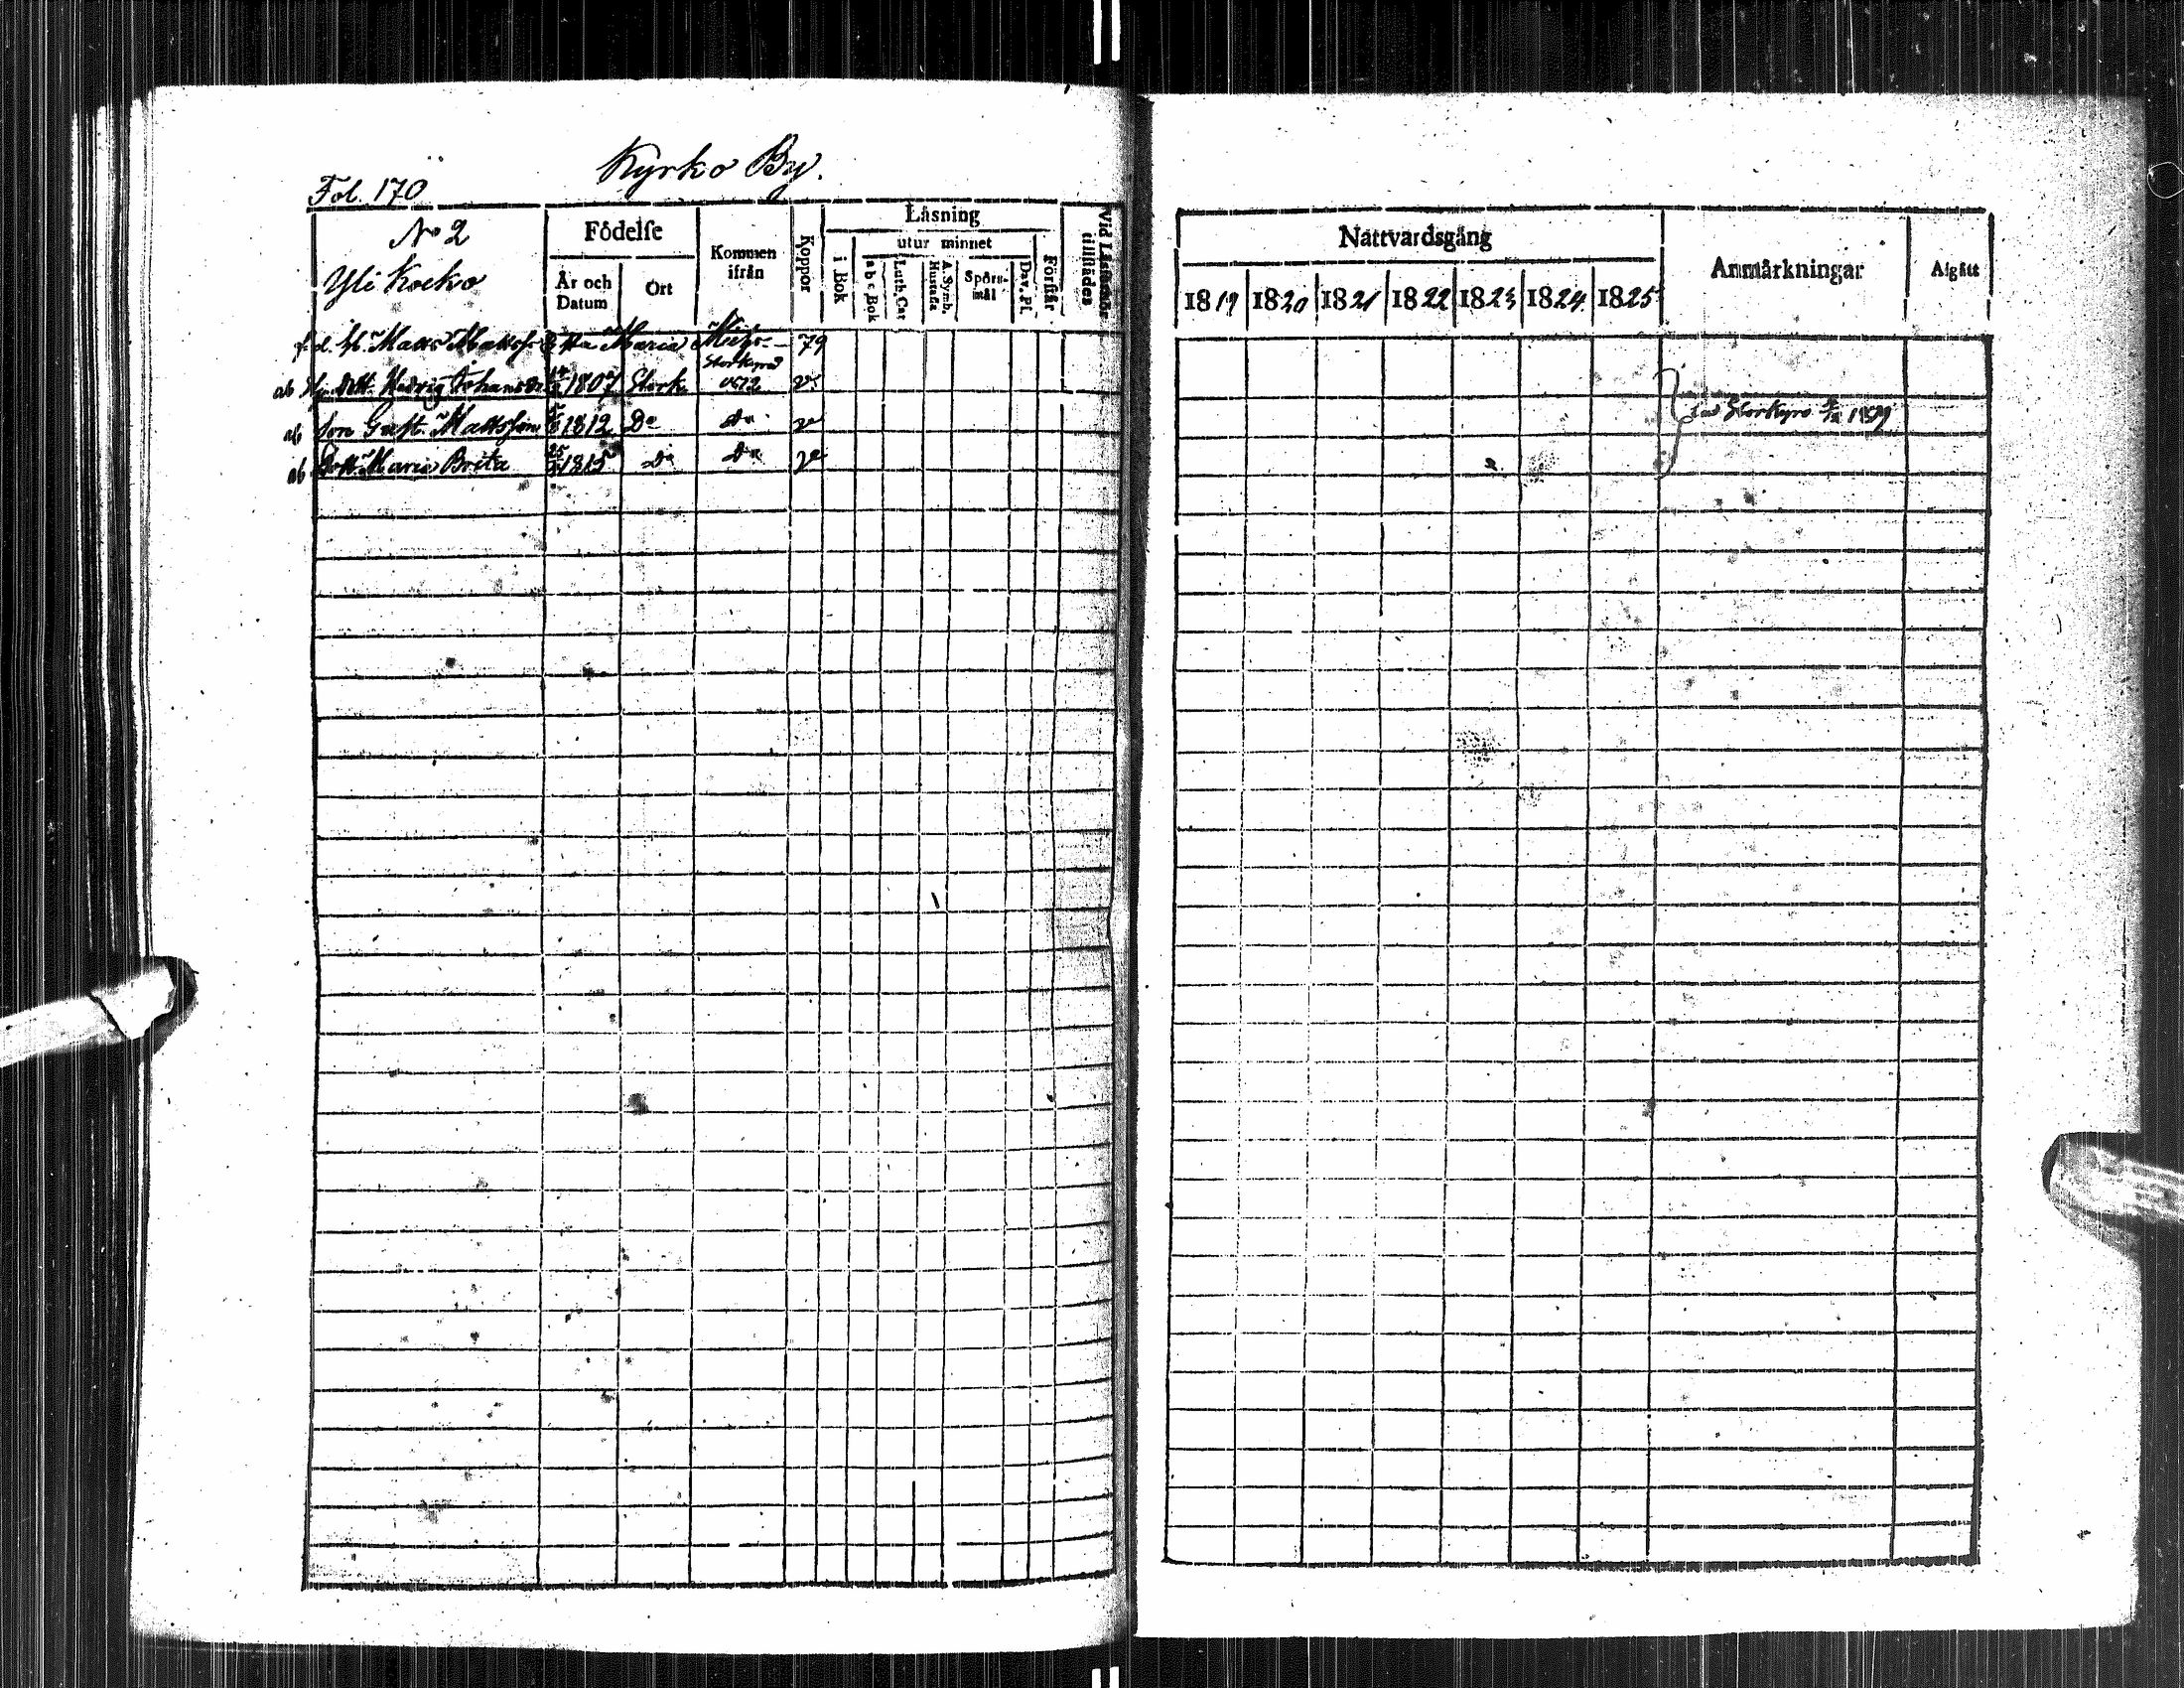 Kyrko By.
Fol. 170
No 2
Yli Kocko
Födelse
År och Datum
Ort
Kommen ifrån
Koppor
Läsning
i Bok
utur minnet
a b c Bok
Luth. Cat
A. Symb. Hustafla
Spörsmål
Dav. Ps.
Förstår
Vid Läseförhör tillstädes
Matts Mattss Maria 79
Storkyro
ab Hedvig Johansdr 1807 Stork. v.
ab Son Gust. Mattsson 1812 Do Do v
ab Dott. Maria Brita 25 1815 Do Do v
Nattvardsgång
Anmärkningar
Afgått
1819 1820 1821 1822 1823 1824 1825
Storkyro 1819